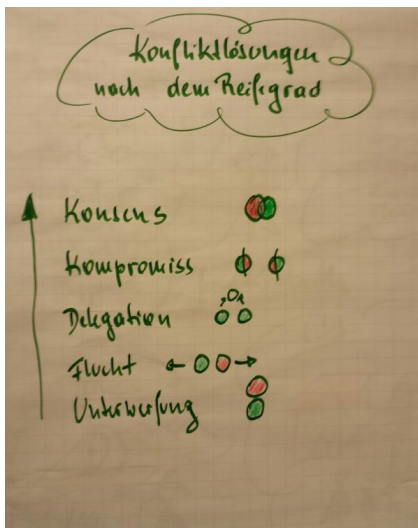 Konfliktlösungen
nach dem Reifegrad
Konsens
Kompromiss
Delegation
Flucht
Unterwerfung